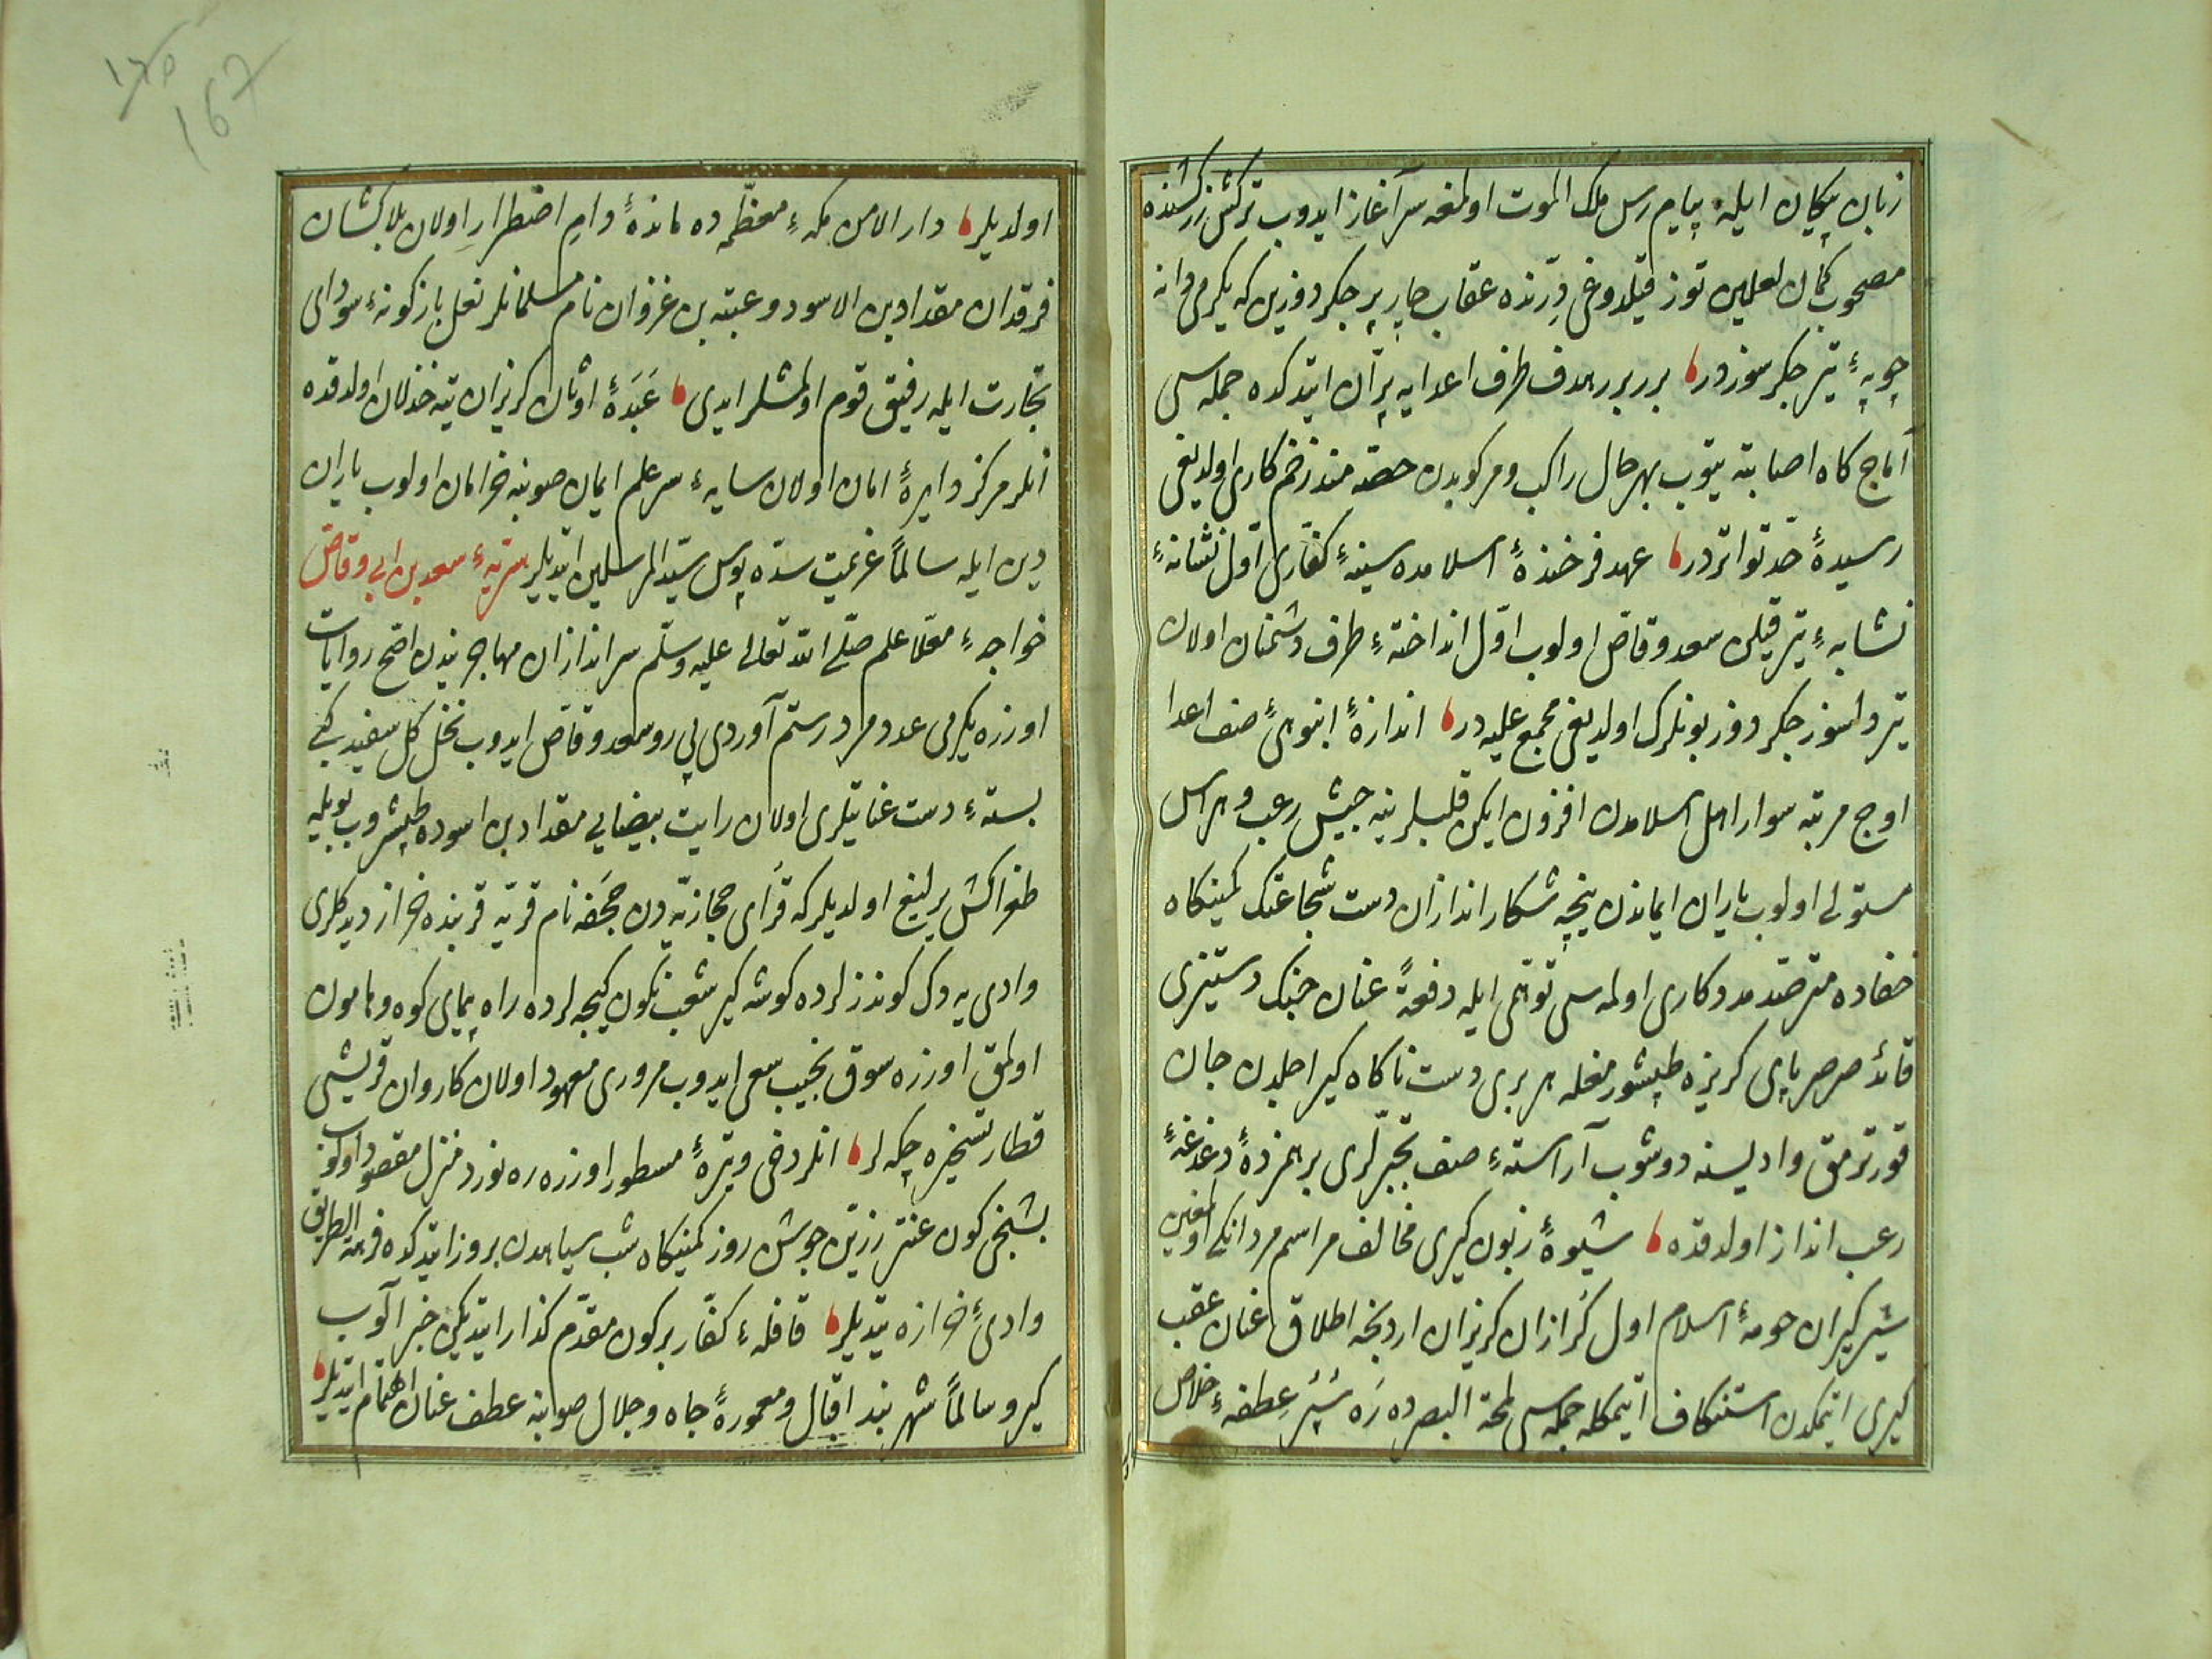 زبان پیکان ایله پیام رس ملک الموت اولمغه سرآغاز ایدوب ترکش زرکشنده
مصحوب کمان لعلین توز قیلدوغی دِرّنده عقاب چارپر جکردوزین که یکرمی دانه
چوبهٔ تیر جکرسوزدر بربر بر هدف طرف اعدایه پرّان ایتدکده جمله سی
آماج کاه اصابته یتوب بهرحال راکب ومرکوبدن حصّه مند زخم کاری اولدیغی
رسیدهٔ حدّ تواتردر عهد فرخندهٔ اسلامده سینهٔ کفّاری اوّل نشانهٔ
نشابهٔ تیر قیلن سعد وقاص اولوب اوّل انداختهٔ طرف دشمنان اولان
تیر دلسوز جکردوز بونلرک اولدیغی مجمع علیه در اندازهٔ انبوهیٔ صف اعدا
اوچ مرتبه سوار اهل اسلامدن افزون ایکن قلبلرینه جیش رعب وهراس
مستولی اولوب یاران ایماندن نیجه شکار اندازان دست شجاعتک کمینکاه
خفاده مترصّد مددکاری اولمه سی توهّمی ایله دفعةً عنان جنک وستیزی
قائد صرصر پای کریزه طپشورمغله هر بری دست ناکاه کیر اجلدن جان
قورترمق وادیسنه دوشوب آراستهٔ صف تجبّرلری برهمزدهٔ دغدغهٔ
رعب انداز اولدقده شیوهٔ زبون کیری مخالف مراسم مردانکی اولمغین
شیرکیران حومهٔ اسلام اول کرازان کریزان اردنجه اطلاق عنان عقب
کیری ایتمکدن استنکاف ایتمکله جمله سی لمحة البصرده ره سپر عطفهٔ خلاص
اولدیلر دار الامن مکهٔ معظّمه ده ماندهٔ دام اضطرار اولان بلاکشان
فرقدان مقداد بن الاسود وعتبه بن غزوان نام مسلمانلر نعل باژکونهٔ سودای
تجارت ایله رفیق قوم اولمشلر ایدی عَبَدهٔ اوثان کریزان تیه خذلان اولدقده
انلر مرکز دایرهٔ امان اولان سایهٔ سر علم ایمان صوبنه خرامان اولوب یاران
دین ایله سالماً عزیمت سدّه بوس سیّد المرسلین ایتدیلر سریّهٔ سعد بن ابی وقاص
خواجهٔ معلّا علم صلّی الله تعالی علیه وسلّم سراندازان مهاجریندن اصح روایات
اوزره یکرمی عدد مرد رستم آوردی پی رو سعد وقاص ایدوب نخل کل سفید کبی
بستهٔ دست عنایتلری اولان رایت بیضایی مقداد بن اسوده طپشروب بویله
طغراکش یرلیغ اولدیلر که قرای حجازیّه دن جحفه نام قریه قربنده خراز دیدکلری
وادی یه دک کوندزلرده کوشه کیر شعب نکون کیجه لرده راه پیمای کوه وهامون
اولمق اوزره سوق نجیب سعی ایدوب مروری معهود اولان کاروان قریشی
قطار تسخیره چکه لر انلر دخی وتیرهٔ مسطور اوزره ره نورد منزل مقصود اولوب
بشنجی کون عنتر زرّین جوشن روز کمینکاه شب سیاهدن بروز ایتدکده فرهمه الطریق
وادیٔ خرازه یتدیلر قافلهٔ کفّار بر کون مقدّم کذار ایتدیکن خبر آلوب
کیرو سالماً شهر بند اقبال ومعمورهٔ جاه وجلال صوبنه عطف عنان اهتمام ایتدیلر
167